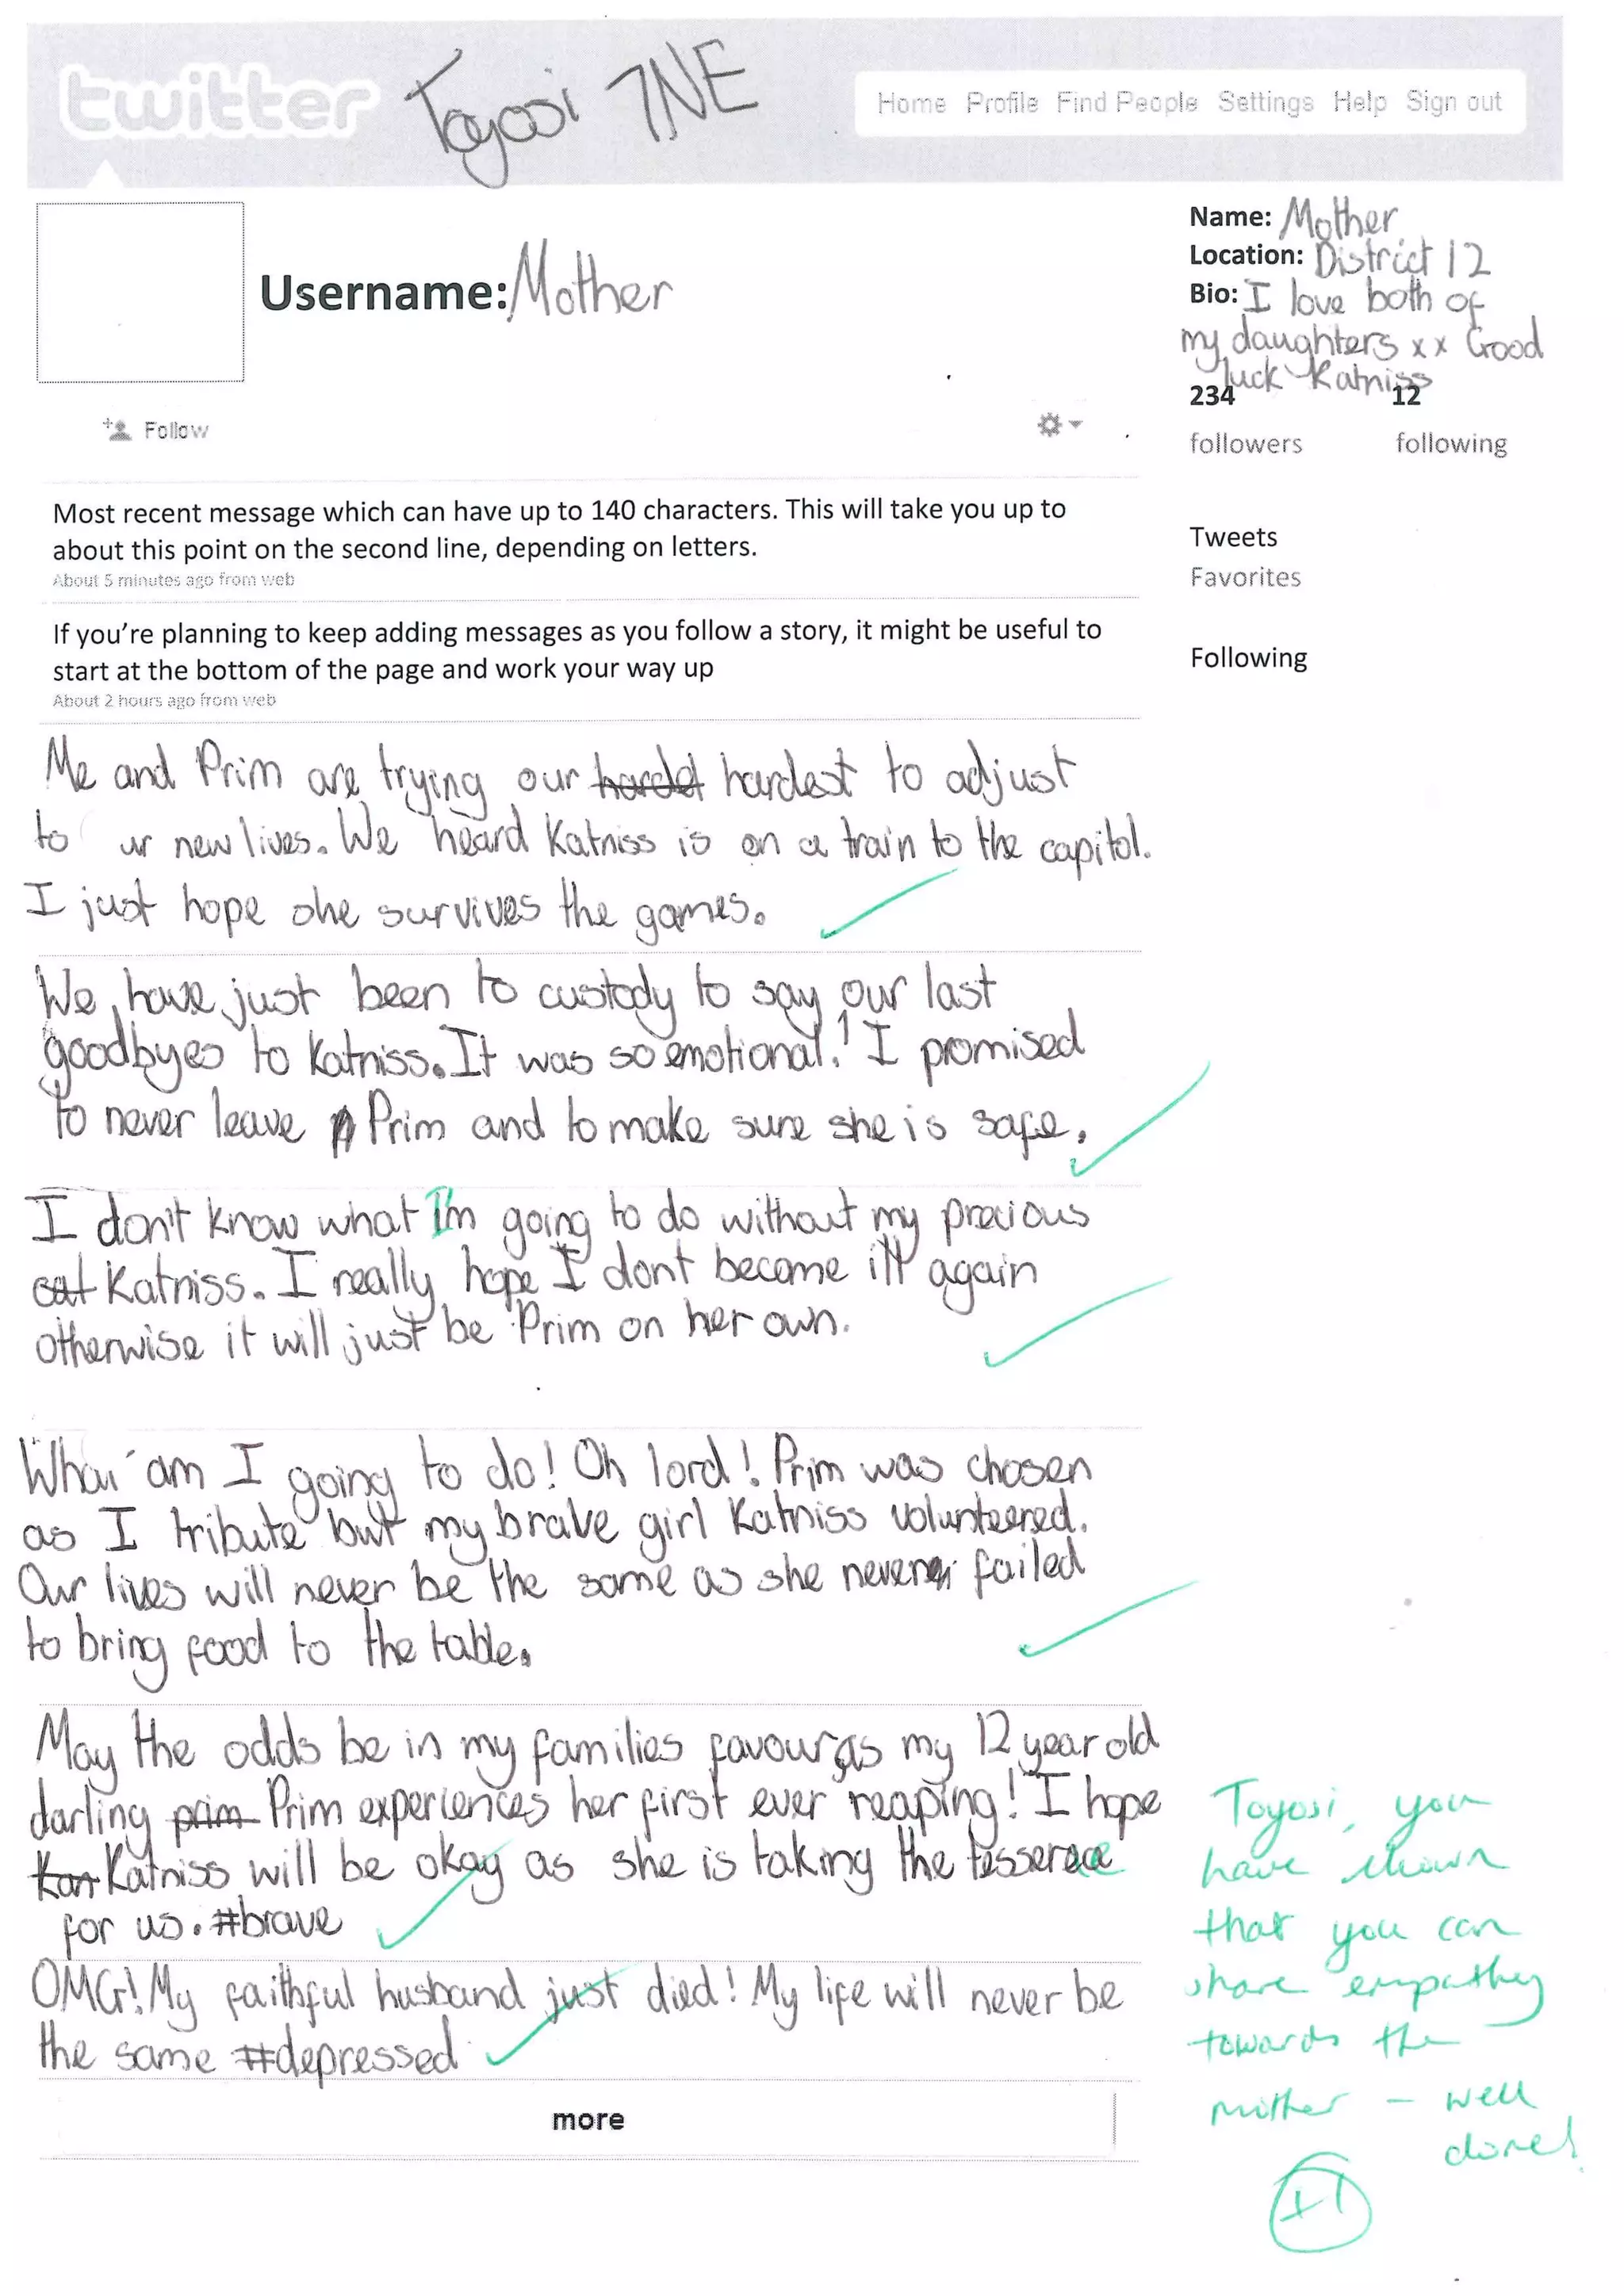 twitter Toyosi 7NE
Home Profile Find People Settings Help Sign out
Username: Mother
Follow
Name: Mother
Location: District 12
Bio: I love both of
my daughters xx Good
luck Katniss
234 12
followers following
Tweets
Favorites
Following
Most recent message which can have up to 140 characters. This will take you up to
about this point on the second line, depending on letters.
About 5 minutes ago from web
If you're planning to keep adding messages as you follow a story, it might be useful to
start at the bottom of the page and work your way up
About 2 hours ago from web
Me and Prim are trying our hardest to adjust
to ur new lives. We heard Katniss is on a train to the capitol.
I just hope she survives the games.
We have just been to custody to say our last
goodbyes to Katniss. It was so emotional! I promised
to never leave Prim and to make sure she is safe.
I don't know what I'm going to do without my precious
cat Katniss. I really hope I dont become ill again
otherwise it will just be Prim on her own.
What am I going to do! Oh lord! Prim was chosen
as I tribute but my brave girl Katniss volunteered.
Our lives will never be the same as she never failed
to bring food to the table.
May the odds be in my families favour as my 12 year old
darling prim Prim experiences her first ever reaping! I hope
Kan Katniss will be okay as she is taking the tesserae
for us. #brave
OMG! My faithful husband just died! My life will never be
the same #depressed
more
Toyosi, you
have shown
that you can
share empathy
towards the
mother - well
done!